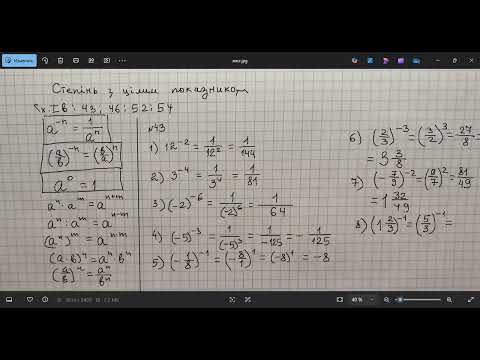 ммт.jpg
Изменить
Степінь з цілим показником
Ск. I В : 43; 46; 52; 54
a⁻ⁿ = 1/aⁿ
(a/b)⁻ⁿ = (b/a)ⁿ
a⁰ = 1
aⁿ · aᵐ = aⁿ⁺ᵐ
aⁿ : aᵐ = aⁿ⁻ᵐ
(aⁿ)ᵐ = aⁿ·ᵐ
(a·b)ⁿ = aⁿ·bⁿ
(a/b)ⁿ = aⁿ/bⁿ
№43
1) 12⁻² = 1/12² = 1/144
2) 3⁻⁴ = 1/3⁴ = 1/81
3) (-2)⁻⁶ = 1/(-2)⁶ = 1/64
4) (-5)⁻³ = 1/(-5)³ = 1/-125 = - 1/125
5) (-1/8)⁻¹ = (-8/1)¹ = (-8)¹ = -8
6) (2/3)⁻³ = (3/2)³ = 27/8 =
= 3 3/8
7) (-7/9)⁻² = (9/7)² = 81/49
= 1 32/49
8) (1 2/3)⁻¹ = (5/3)⁻¹ =
40 %